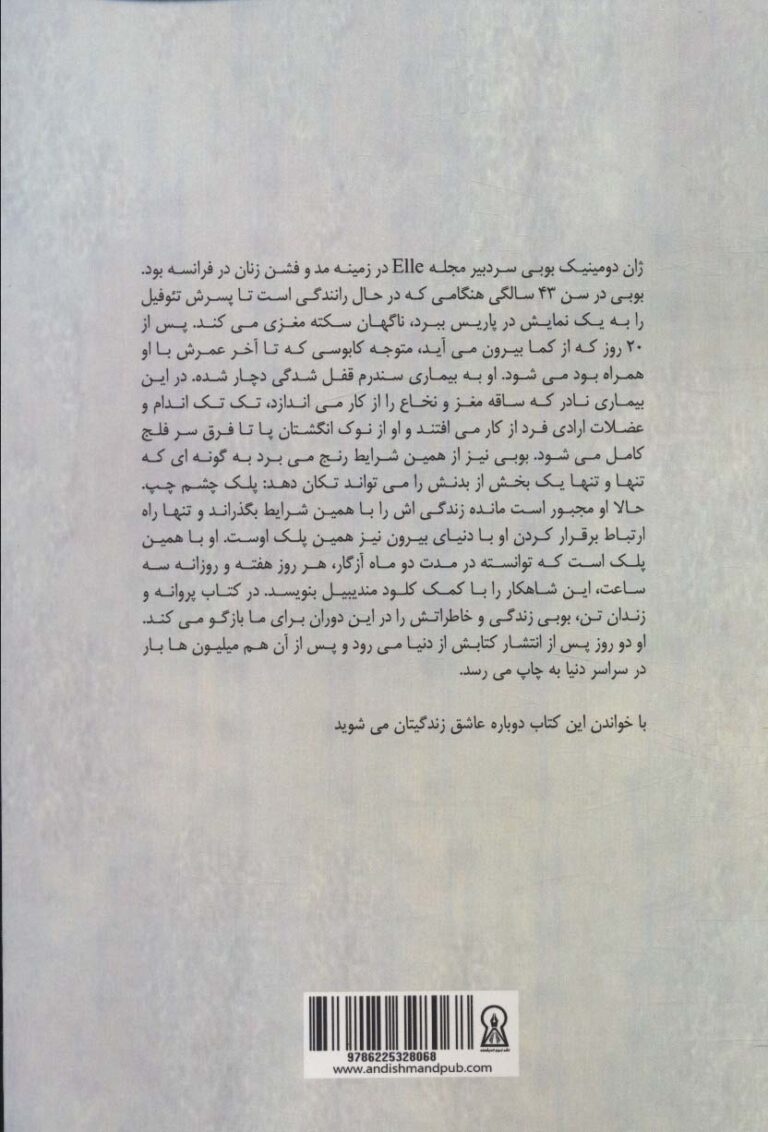 ژان دومینیک بوبی سردبیر مجله Elle در زمینه مد و فشن زنان در فرانسه بود.
بوبی در سن ۴۳ سالگی هنگامی که در حال رانندگی است تا پسرش تئوفیل
را به یک نمایش در پاریس ببرد، ناگهان سکته مغزی می کند. پس از
۲۰ روز که از کما بیرون می آید، متوجه کابوسی که تا آخر عمرش با او
همراه بود می شود. او به بیماری سندرم قفل شدگی دچار شده. در این
بیماری نادر که ساقه مغز و نخاع را از کار می اندازد، تک تک اندام و
عضلات ارادی فرد از کار می افتند و او از نوک انگشتان پا تا فرق سر فلج
کامل می شود. بوبی نیز از همین شرایط رنج می برد به گونه ای که
تنها و تنها یک بخش از بدنش را می تواند تکان دهد: پلک چشم چپ.
حالا او مجبور است مانده زندگی اش را با همین شرایط بگذراند و تنها راه
ارتباط برقرار کردن او با دنیای بیرون نیز همین پلک اوست. او با همین
پلک است که توانسته در مدت دو ماه آزگار، هر روز هفته و روزانه سه
ساعت، این شاهکار را با کمک کلود مندیبیل بنویسد. در کتاب پروانه و
زندان تن، بوبی زندگی و خاطراتش را در این دوران برای ما بازگو می کند.
او دو روز پس از انتشار کتابش از دنیا می رود و پس از آن هم میلیون ها بار
در سراسر دنیا به چاپ می رسد.
با خواندن این کتاب دوباره عاشق زندگیتان می شوید
9786225328068
www.andishmandpub.com